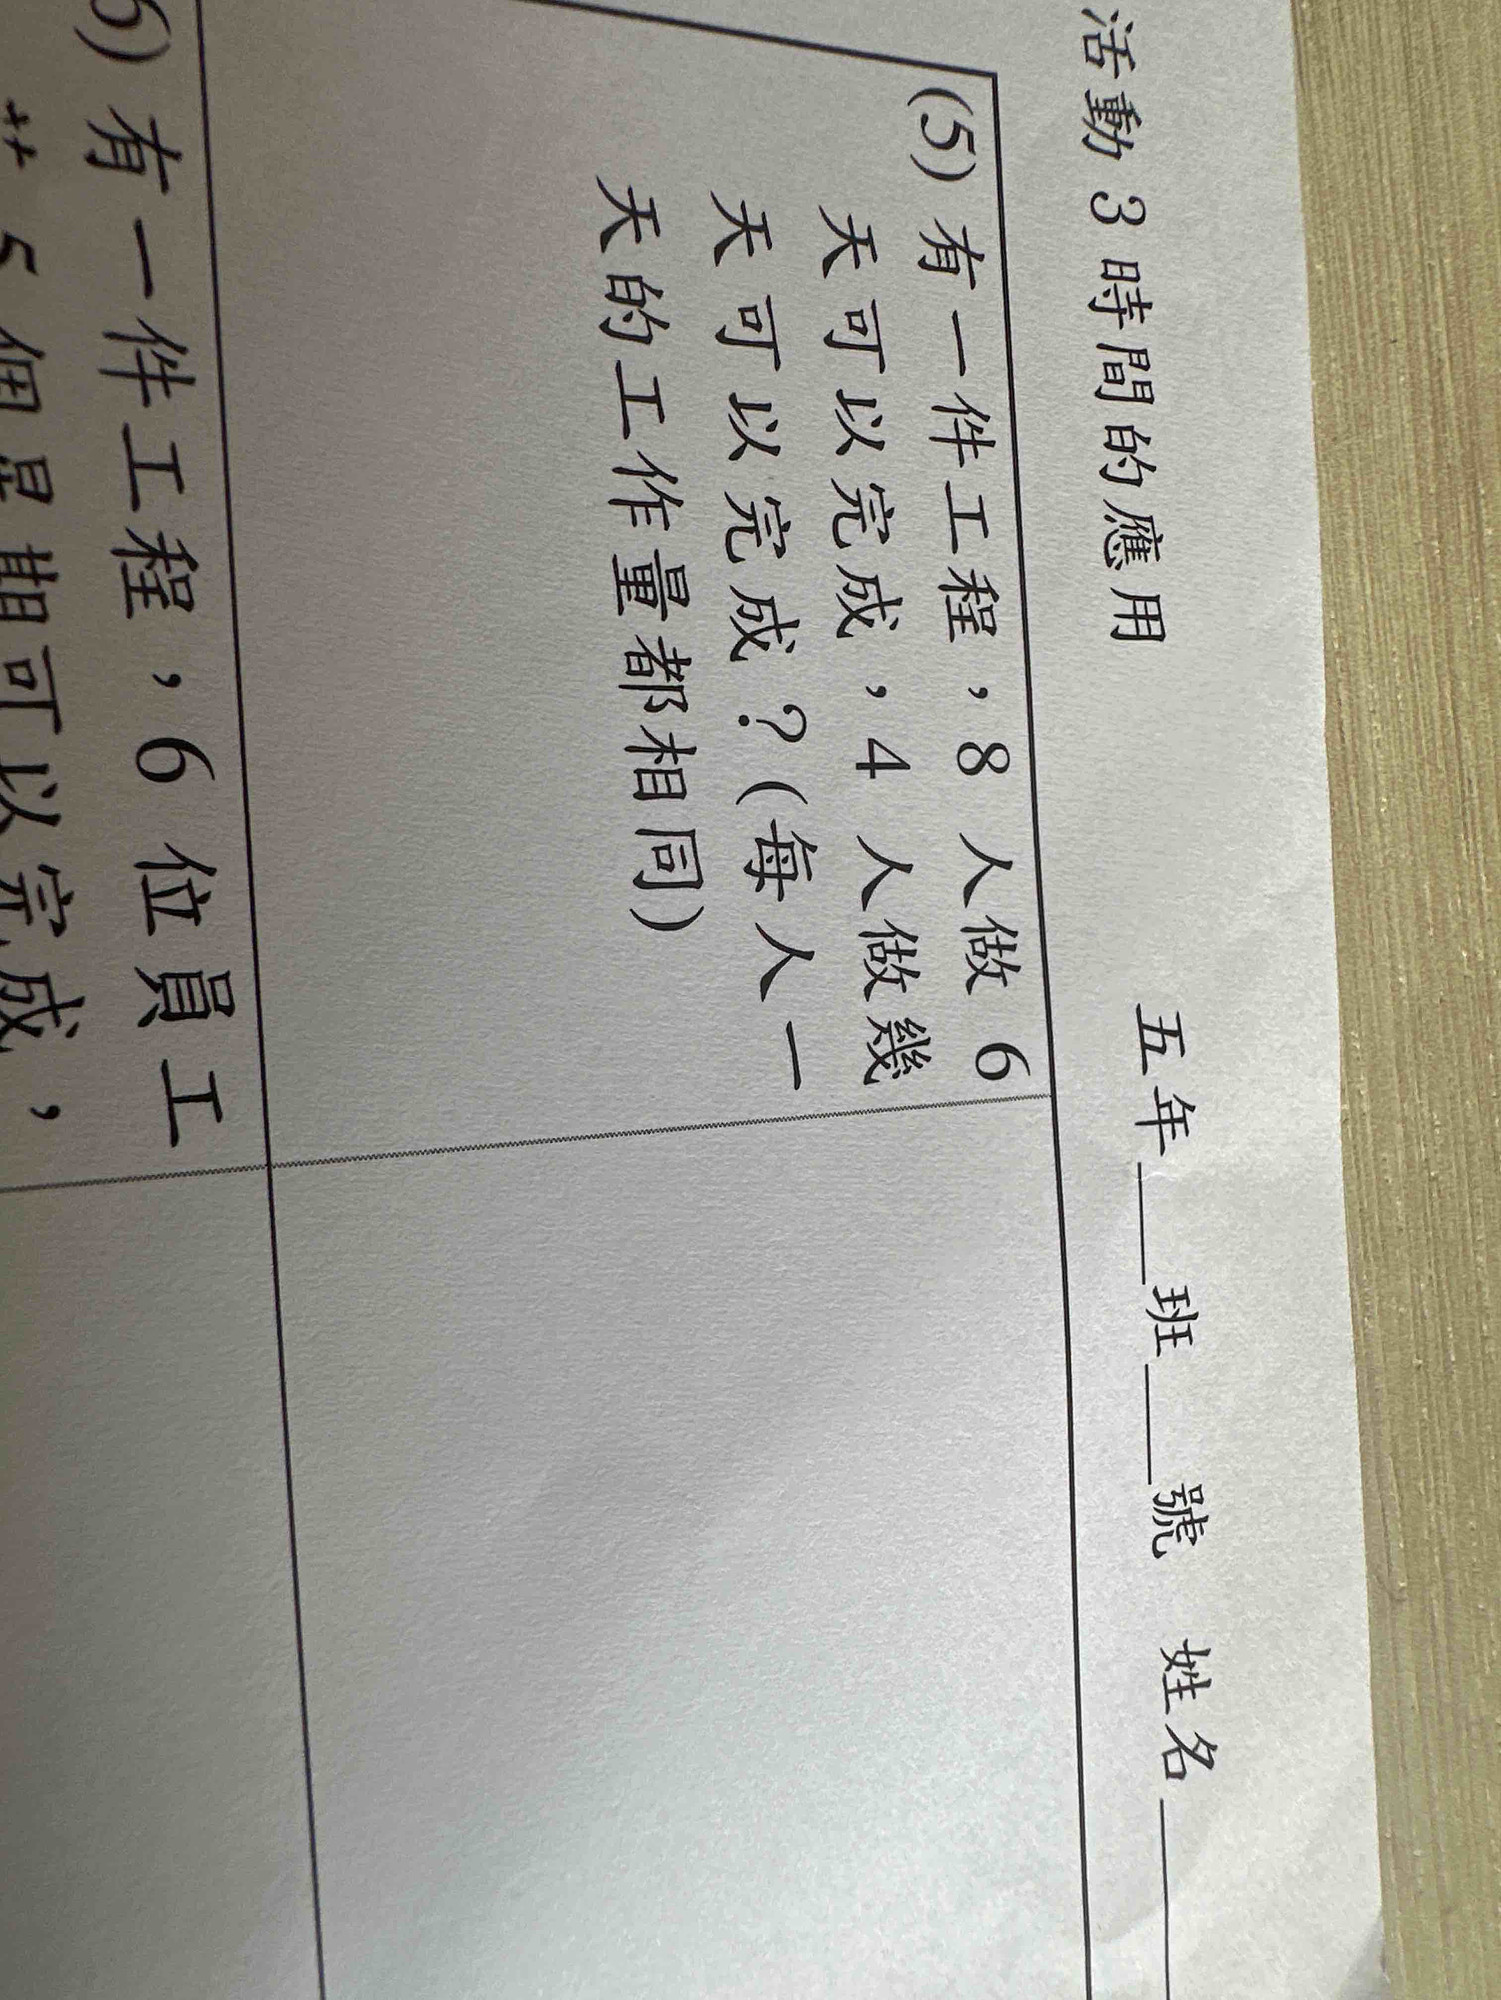 活動 3 時間的應用 五年___班___號 姓名
(5) 有一件工程，8 人做 6
天可以完成，4 人做幾
天可以完成？(每人一
天的工作量都相同)
6) 有一件工程，6 位員工
5 個星期可以完成，